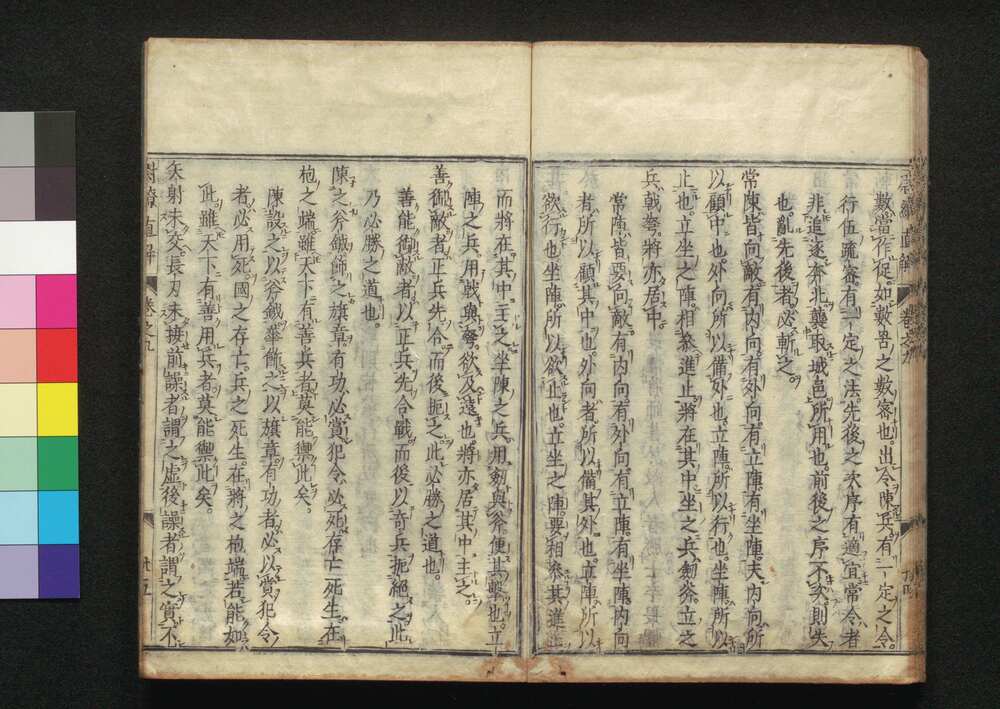 數當作促如數罟之數密也出令陳兵有一定之令
行伍疏密有一定之法先後之次序有適宜常令者
非追逐奔北襲取城邑所用也前後之序不次則失
也亂先後者必斬之
常陳皆向敵有內向有外向有立陳有坐陳夫內向所
以顧中也外向所以備外也立陳所以行也坐陳所以
止也立坐之陳相參進止將在其中坐之兵劔斧立之
兵戟弩將亦居中
常陳皆要向敵有內向有外向有立陳有坐陳內向
者所以顧其中也外向者所以備其外也立陳所以
欲行也坐陣所以欲止也立坐之陣要相參其進止
而將在其中主之坐陳之兵用劔與斧便其擊也立
陣之兵用戟與弩欲及遠也將亦居其中主之
善御敵者正兵先合而後扼之此必勝之道也
善能御敵者以正兵先合戰而後以奇兵扼絕之此
乃必勝之道也
陳之斧鉞飾之旗章有功必賞犯令必死存亡死生在
枹之端雖天下有善兵者莫能禦此矣
陳設之以斧鉞華飾之以旗章有功者必以賞犯令
者必用死國之存亡兵之死生在將之枹端若能如
此雖天下有善用兵者莫能禦此矣
矢射未交長刃未接前譟者謂之虛後譟者謂之實不
尉繚直解
卷之九
廿五